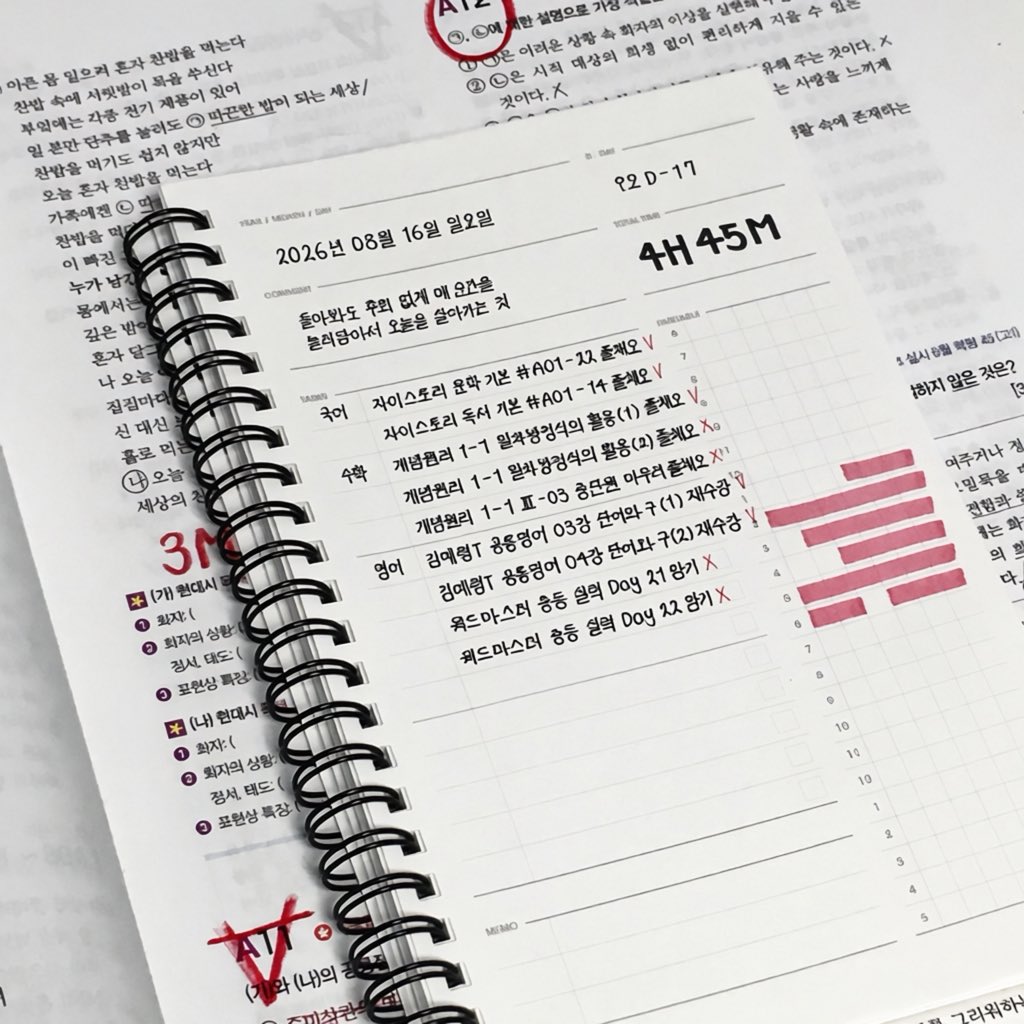 아픈 몸 일으켜 혼자 찬밥을 먹는다
찬밥 속에 서릿발이 목을 쑤신다
부엌에는 각종 전기 제품이 있어
일 분만 단추를 눌러도 ㉠ 따끈한 밥이 되는 세상
찬밥을 먹기도 쉽지 않지만
오늘 혼자 찬밥을 먹는다
가족에겐 ㉡ 따
찬밥을 먹
이 빠진
누가 남긴
몸에서는
깊은 밤
혼자 달
나 오늘
집집마다
신 대신
홀로 먹는
㉯ 오늘
세상의 찬
3M
(가) 현대시
❶ 화자: (
❷ 화자의 상황:
정서, 태도: (
❸ 표현상 특징:
(나) 현대시
❶ 화자: (
❷ 화자의 상황:
정서, 태도: (
❸ 표현상 특징:
A11
(가)와 (나)의 공통점
A12
㉠, ㉡에 대한 설명으로 가장
① ㉠은 어려운 상황 속 화자의 이상을 실현해
② ㉡은 시적 대상의 희생 없이 편리하게 지을 수 있는
것이다. X
유해 주는 것이다. X
는 사랑을 느끼게
생활 속에 존재하는
YEAR / MONTH / DAY
2026년 08월 16일 일요일
D - DAY
92 D-17
TOTAL TIME
4H 45M
COMMENT
돌아봐도 후회 없게 매 순간을
눌러담아서 오늘을 살아가는 것
TASKS
TIMETABLE
국어
자이스토리 문학 기본 #A01-22 풀채오 V
자이스토리 독서 기본 #A01-14 풀채오 V
수학
개념원리 1-1 일차방정식의 활용(1) 풀채오 V
개념원리 1-1 일차방정식의 활용(2) 풀채오 X
개념원리 1-1 Ⅲ-03 중단원 마무리 풀채오 X
영어
김매령T 공통영어 03강 단어와 구(1) 재수강 V
김매령T 공통영어 04강 단어와 구(2) 재수강 V
워드마스터 중등 실력 Day 21 암기 X
워드마스터 중등 실력 Day 22 암기 X
6
7
8
9
3
4
5
6
7
8
9
10
10
10
1
2
3
4
5
MEMO
실시 6월 학평
(고1)
하지 않은 것은?
[3
여주거나 정